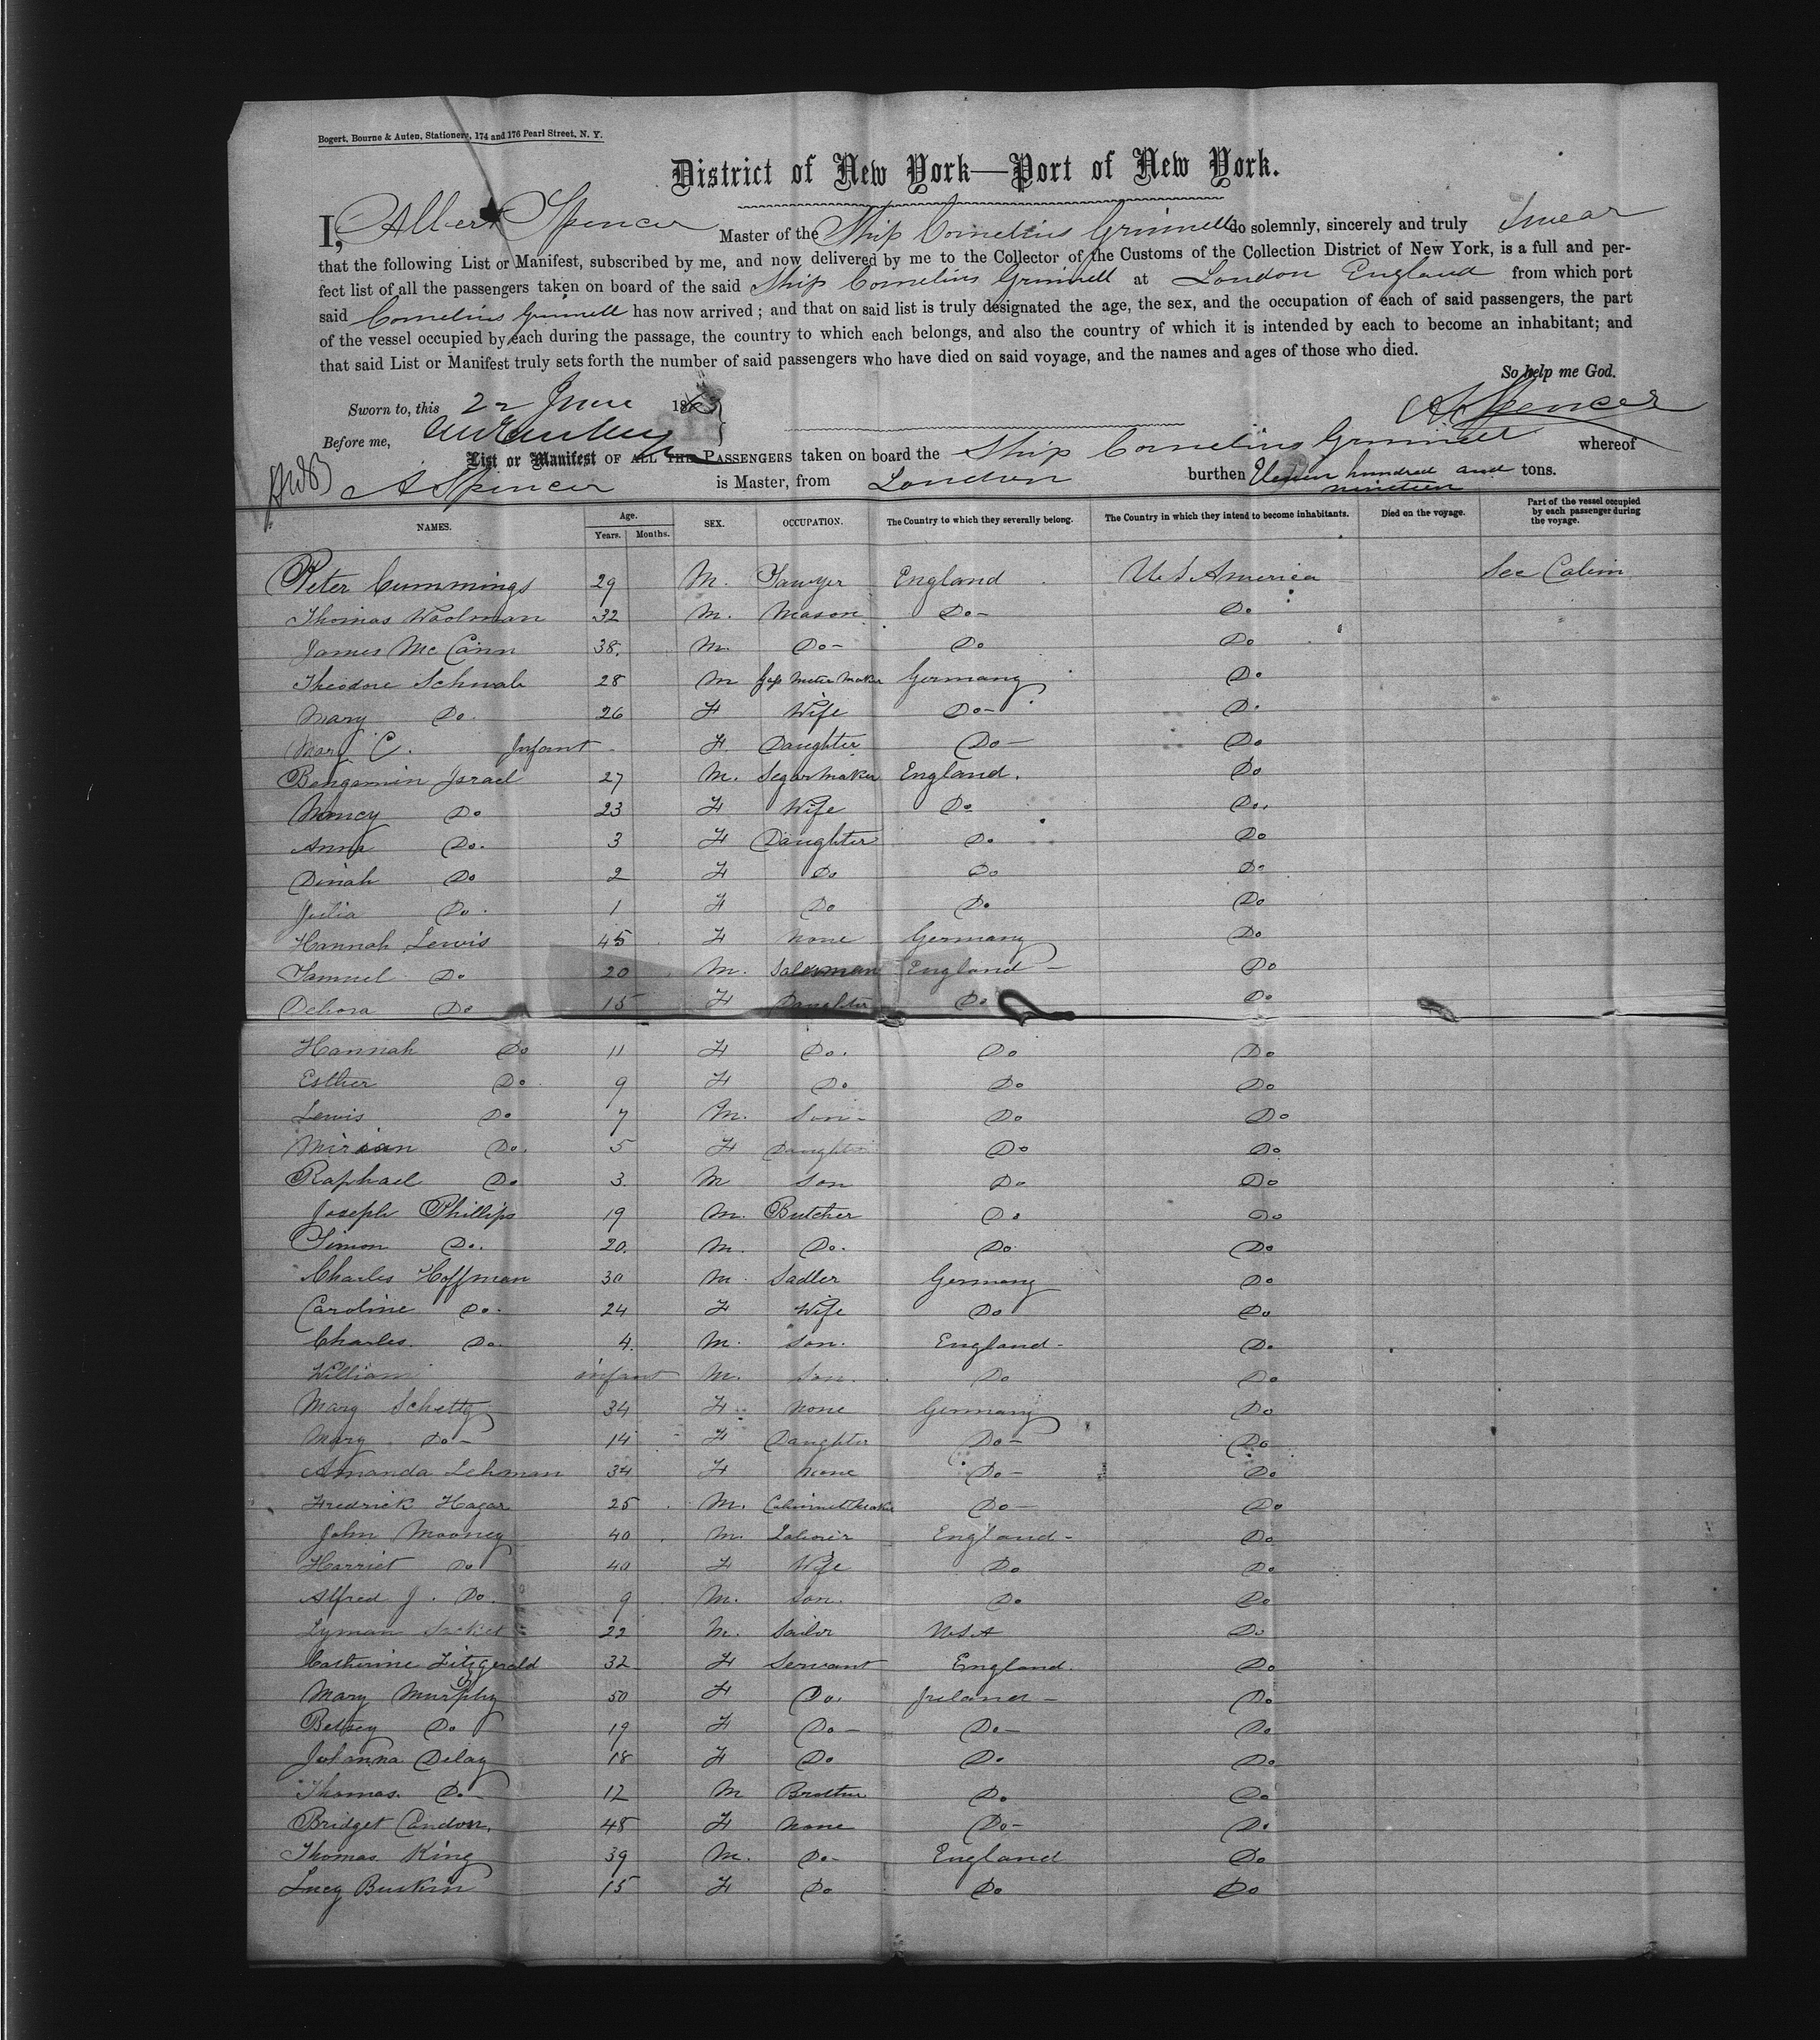 Bogert, Bourne & Auten, Stationers, 174 and 176 Pearl Street, N. Y.
District of New York—Port of New York.
I, Albert Spencer Master of the Ship Cornelius Grinnell do solemnly, sincerely and truly Swear
that the following List or Manifest, subscribed by me, and now delivered by me to the Collector of the Customs of the Collection District of New York, is a full and per-
fect list of all the passengers taken on board of the said Ship Cornelius Grinnell at London England from which port
said Cornelius Grinnell has now arrived; and that on said list is truly designated the age, the sex, and the occupation of each of said passengers, the part
of the vessel occupied by each during the passage, the country to which each belongs, and also the country of which it is intended by each to become an inhabitant; and
that said List or Manifest truly sets forth the number of said passengers who have died on said voyage, and the names and ages of those who died.
So help me God.
Sworn to, this 22 June 1863
A Spencer
Before me,
List or Manifest OF ALL THE PASSENGERS taken on board the Ship Cornelius Grinnell whereof
A Spencer is Master, from London burthen Eleven hundred and nineteen tons.
NAMES. Age. Years. Months. SEX. OCCUPATION. The Country to which they severally belong. The Country in which they intend to become inhabitants. Died on the voyage. Part of the vessel occupied by each passenger during the voyage.
Peter Cummings 29 M. Sawyer England U S America Sec Cabin
Thomas Woolman 32 M. Mason Do- Do
James Mc Cann 38. M. Do- Do Do
Theodore Schwab 28 M Gas Meter Maker Germany Do
Mary Do. 26 F Wife Do- Do
Mary C. Infant F Daughter Do- Do
Bengamin Israel 27 M. Segar Maker England. Do
Nancy Do 23 F Wife Do Do.
Anna Do. 3 F Daughter Do Do
Dinah Do 2 F Do Do Do
Julia Do. 1 F Do Do Do
Hannah Lewis 45 F None Germany Do
Samuel Do 20 M. Salesman England- Do
Debora Do 15 F Daughter Do Do
Hannah Do 11 F Do. Do Do
Esther Do. 9 F Do Do Do
Lewis Do 7 M. Son- Do Do
Mirian Do. 5 F Daughter Do Do
Raphael Do 3. M Son Do Do
Joseph Phillips 19 M. Butcher Do Do
Simon Do. 20. M. Do. Do Do
Charles Hoffman 30 M. Sadler Germany Do
Caroline Do. 24 F Wife Do Do
Charles. Do. 4. M. Son. England- Do
William infant M. Son. Do Do
Mary Schetty 34 F None Germany Do
Mary Do- 14 F Daughter Do- Do
Amanda Lehman 34 F None Do- Do
Fredrick Hagar 25 M. Cabinet Maker Do- Do
John Mooney 40 M. Laborer England- Do
Harriet Do 40 F Wife Do Do
Alfred J. Do. 9 M. Son. Do Do
Lyman 22 M. Sailor U S A Do
Catherine Fitzgerald 32 F Servant England. Do
Mary Murphy 50 F Do. Ireland- Do
Betsey Do 19 F Do- Do- Do
Johanna Delay 18 F Do Do Do
Thomas. Do- 12 M Brother Do Do
Bridget Condon. 48 F None Do- Do
Thomas King 39 M. Do- England Do
Lucy Buskin 15 F Do Do Do